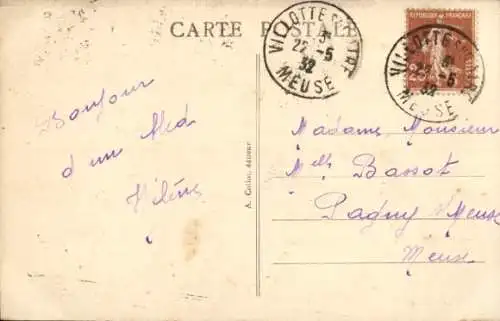 CARTE POSTALE
VILLOTTE
22 -5
32
MEUSE
REPUBLIQUE FRANÇAISE
VILLOTTE
-5
32
MEUSE
Bonjour
d'un
Hélène
A. Collin, éditeur
Madame Monsieur
Melle Bassot
Pagny s/Meuse
Meuse